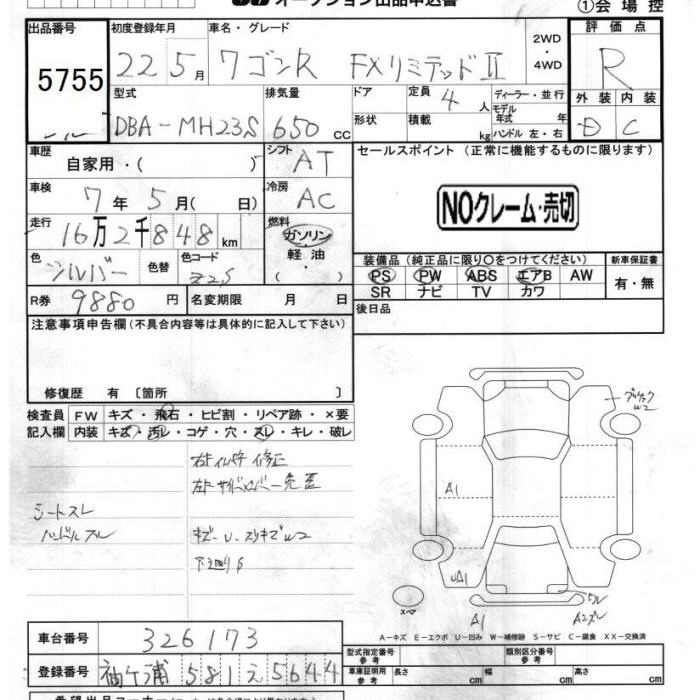 オークション出品申込書
①会場控
出品番号 初度登録年月 車名・グレード 評価点
5755 22年 5月 ワゴンR FXリミテッドⅡ 2WD・4WD R
型式 排気量 ドア 定員 4人 ディーラー・並行 外装 内装
DBA-MH23S 650cc 形状 積載 kg モデル年式 年 ハンドル 左・右 D C
車歴 自家用・( ) シフト AT セールスポイント (正常に機能するものに限ります)
車検 7年 5月( 日) 冷房 AC
NOクレーム・売切
走行 16万2千848km 燃料 ガソリン・軽油・
色 シルバー 色替 色コード Z2S
装備品(純正品に限り○をつけてください) 新車保証書
PS PW ABS エアB AW 有・無
SR ナビ TV カワ
R券 9880円 名変期限 月 日 後日品
注意事項申告欄(不具合内容等は具体的に記入して下さい)
修復歴 有〔箇所 〕
検査員 FW キズ・飛石・ヒビ割・リペア跡・×要
記入欄 内装 キズ・汚レ・コゲ・穴・スレ・キレ・破レ
修正
シートスレ
ハンドルスレ
W2
A1
UA1
スペア
A1
A2スレ
A-キズ E-エクボ U-凹み W-補修跡 S-サビ C-腐食 XX-交換済
車台番号 326173
型式指定番号 参考 類別区分番号 参考
登録番号 袖ヶ浦 581 え 5644
車庫証明用 参考 長さ 幅 高さ cm